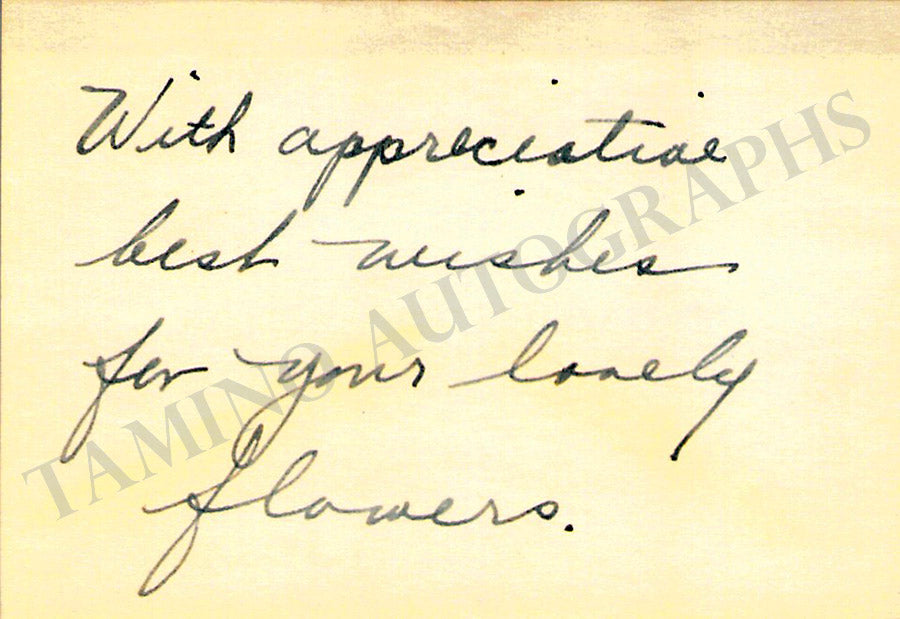 With appreciative
best wishes
for your lovely
flowers.
TAMINO AUTOGRAPHS